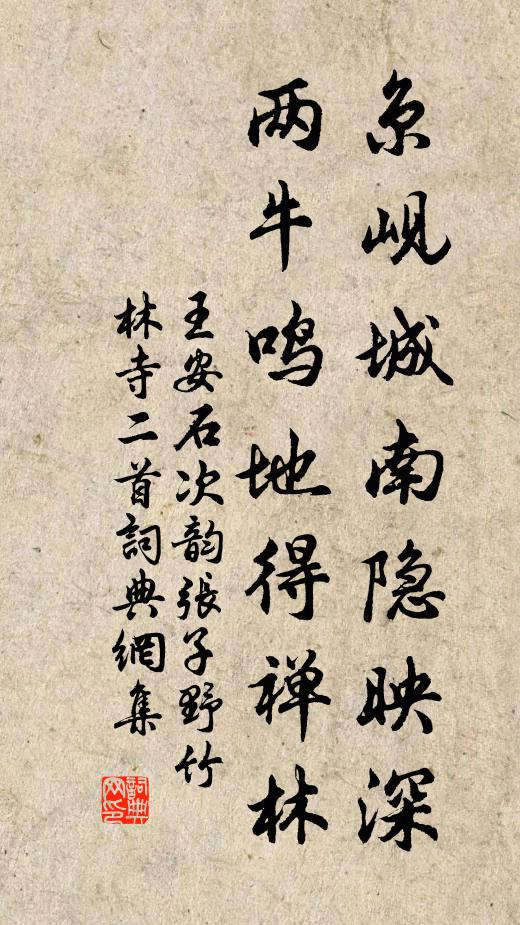 京岘城南隐映深
两牛鸣地得禅林
王安石次韵張子野竹
林寺二首詞典網集
詞典
网印